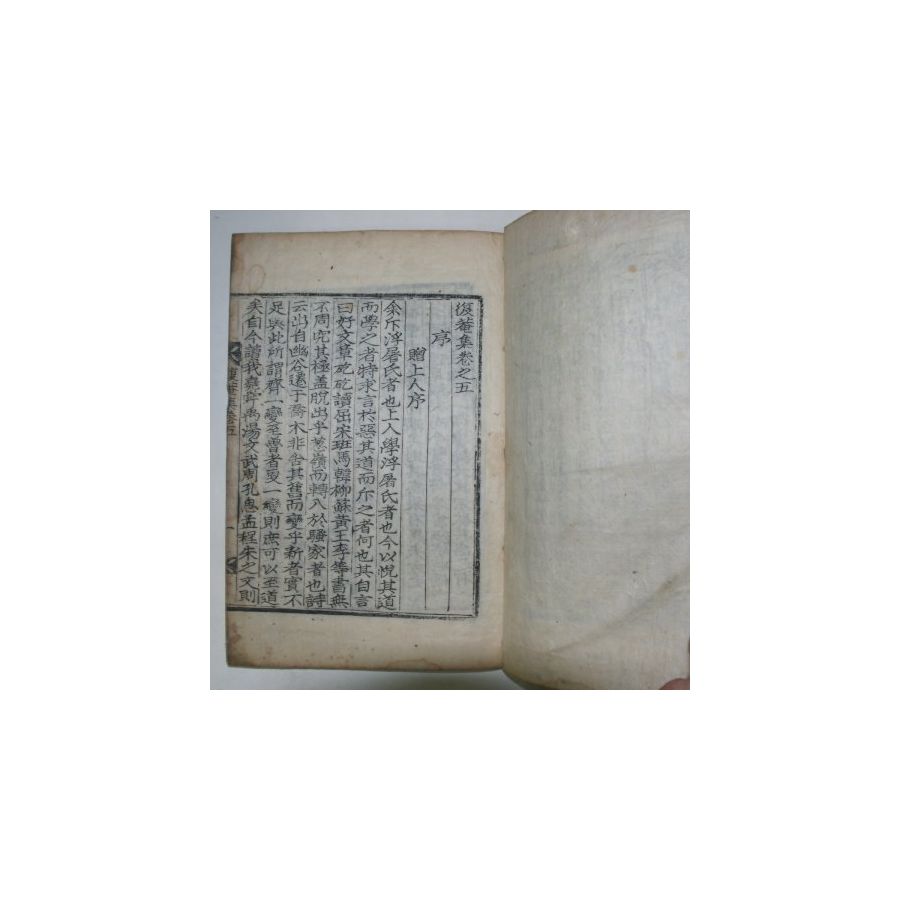 復菴集卷之五
序
贈上人序
余斥浮屠氏者也上人學浮屠氏者也今以悅其道
而學之者特求言於惡其道而斥之者何也其自言
曰好文章矻矻讀屈宋班馬韓柳蘇黃王李等書無
不周究其極盖脫出乎葱嶺而轉入於騷家者也詩
云出自幽谷遷于喬木非舍其舊而變乎新者實不
足與此所謂齊一變至魯者更一變則庶可以至道
矣自今讀我堯舜禹湯文武周孔思孟程朱之文則
復菴集卷五
一